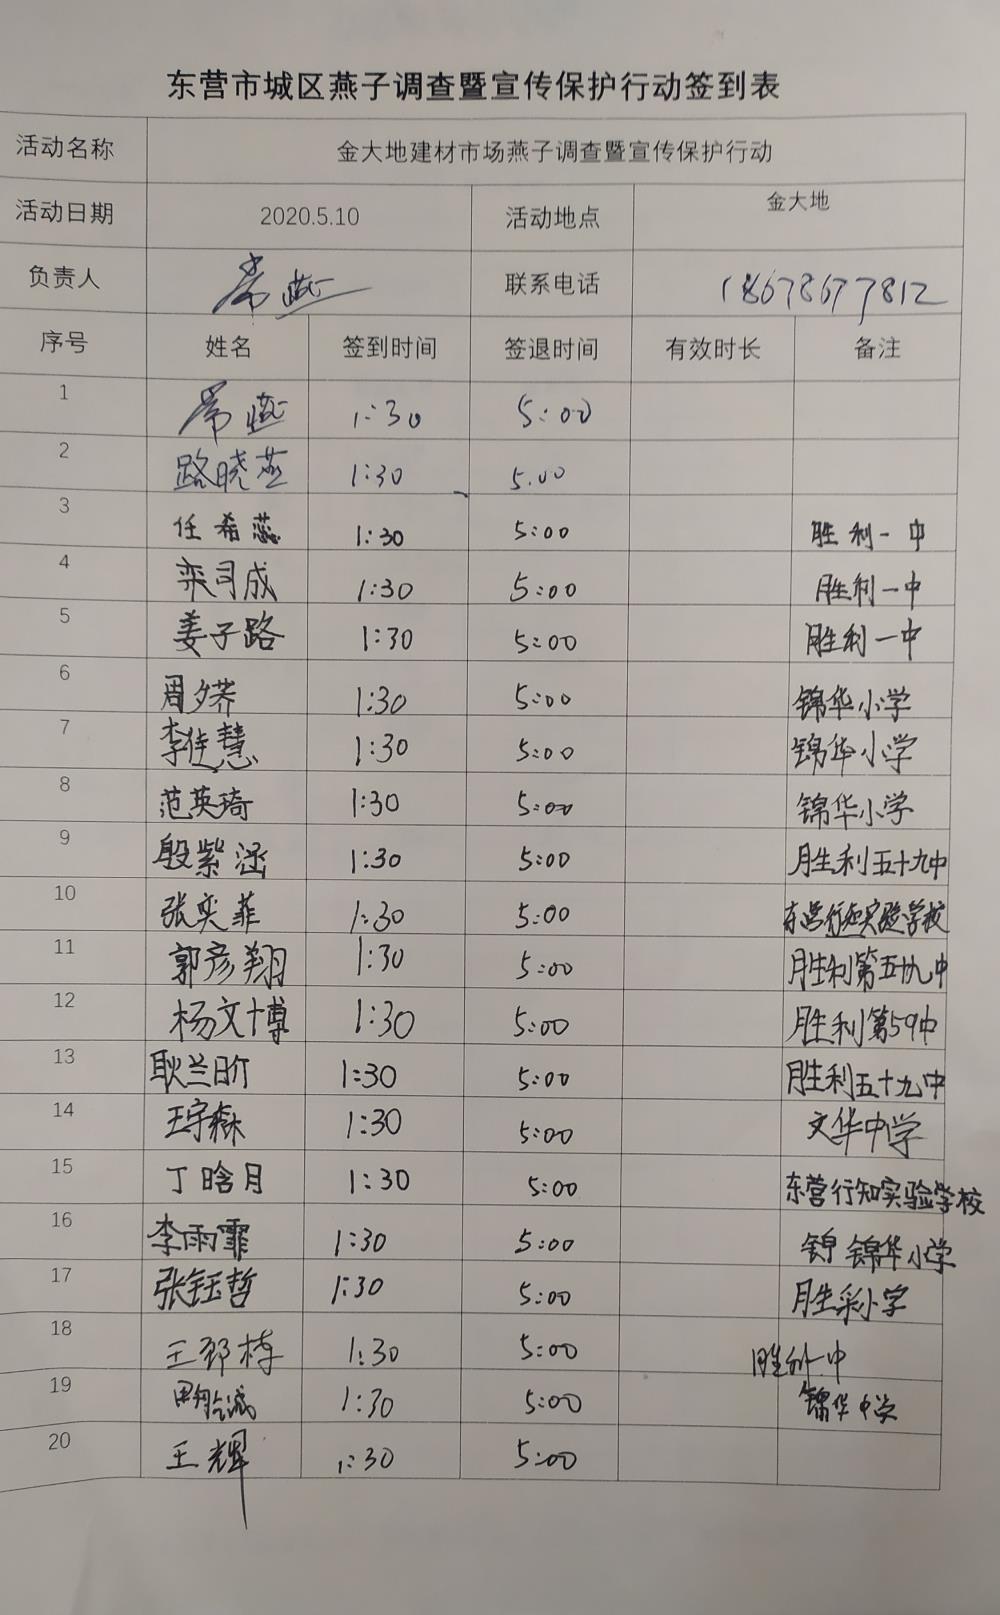 东营市城区燕子调查暨宣传保护行动签到表
活动名称 金大地建材市场燕子调查暨宣传保护行动
活动日期 2020.5.10 活动地点 金大地
负责人 常燕 联系电话 18678677812
序号 姓名 签到时间 签退时间 有效时长 备注
1 常燕 1:30 5:00
2 路晓燕 1:30 5:00
3 任希蕊 1:30 5:00 胜利一中
4 栾司成 1:30 5:00 胜利一中
5 姜子路 1:30 5:00 胜利一中
6 周夕荞 1:30 5:00 锦华小学
7 李佳慧 1:30 5:00 锦华小学
8 范英琦 1:30 5:00 锦华小学
9 殷紫涵 1:30 5:00 胜利五十九中
10 张奕菲 1:30 5:00 东营行知实验学校
11 郭彦翔 1:30 5:00 胜利第五十九中
12 杨文博 1:30 5:00 胜利第59中
13 耿兰 1:30 5:00 胜利五十九中
14 王宇森 1:30 5:00 文华中学
15 丁晗月 1:30 5:00 东营行知实验学校
16 李雨霏 1:30 5:00 锦 锦华小学
17 张钰哲 1:30 5:00 胜采小学
18 王 1:30 5:00 一中
19 1:30 5:00 锦华中学
20 王辉 1:30 5:00